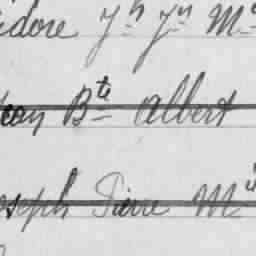 idore Jh Jn Me
Jean Bte Albert
oseph Pierre M